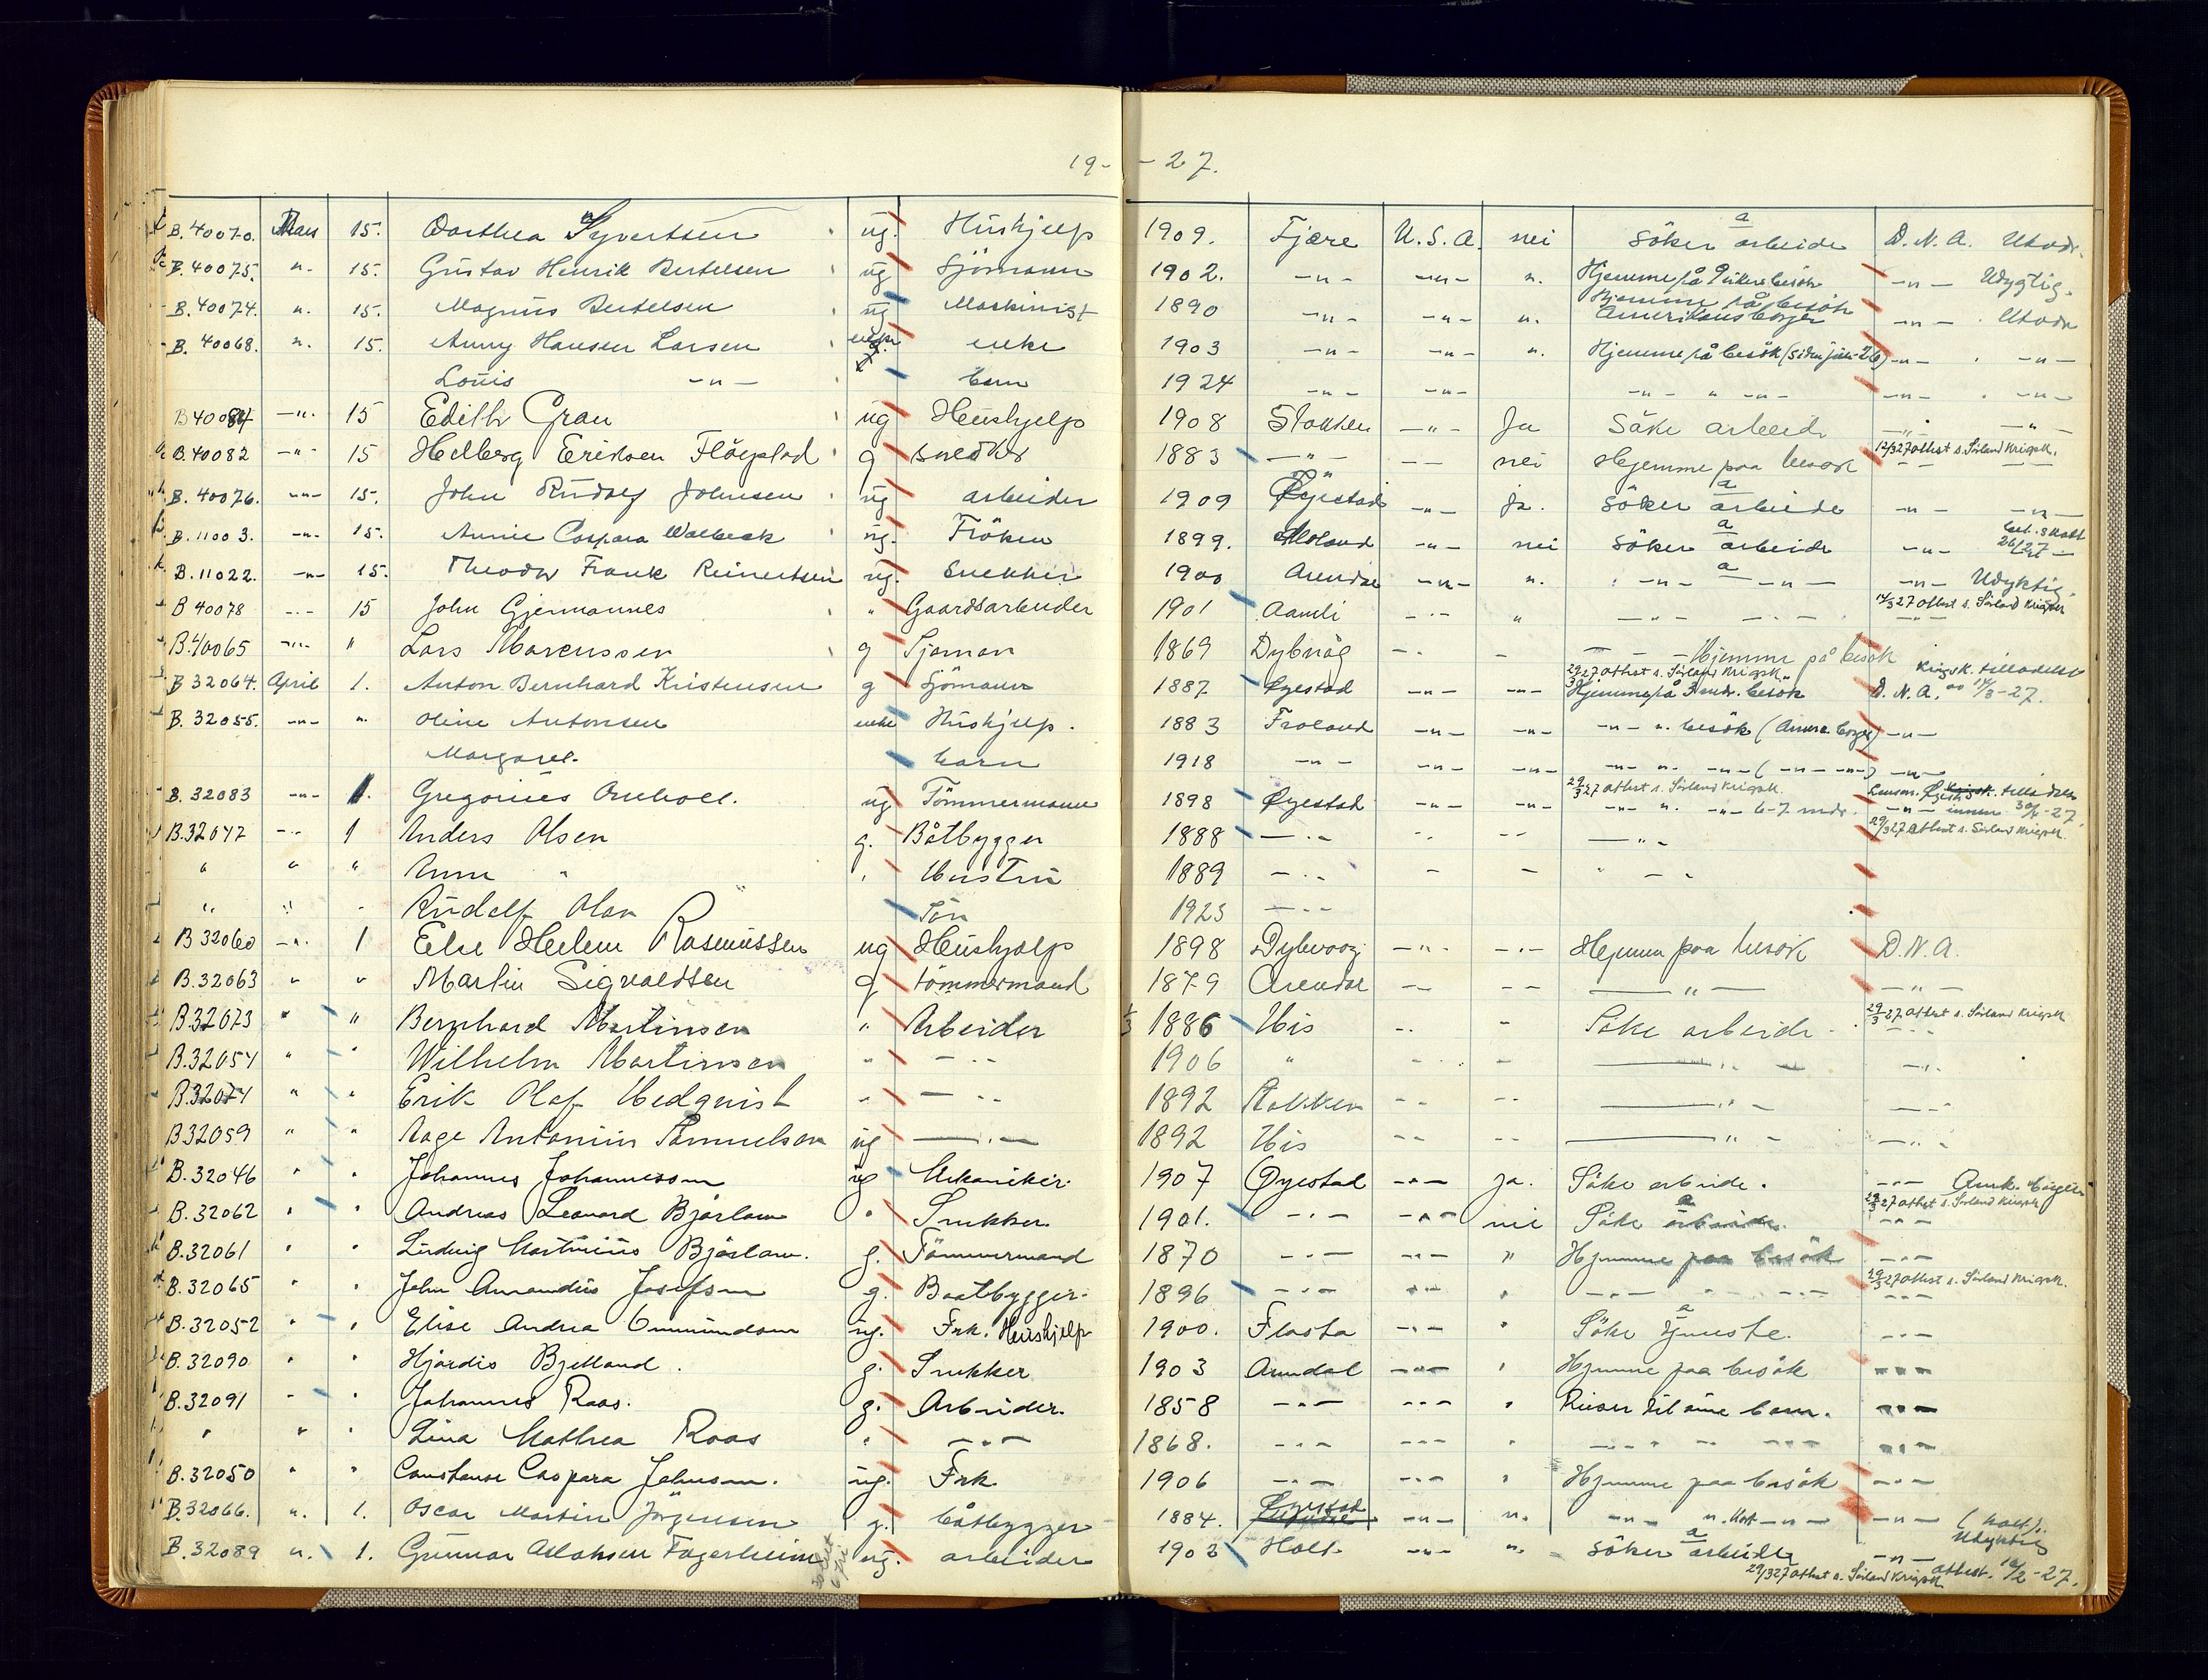 19- -27.
B.40070. Mars 15. Dorthea Syvertsen ug. Hushjelp 1909. Fjære U.S.A. nei söker arbeide D.N.A. Utvdr.
B.40075. " 15. Gustav Henrik Bertelsen ug Sjömann 1902. -"- -"- ". Hjemme på besök -"- Udygtig.
B.40074. " 15. Magnus Bertelsen ug Maskinist 1890 -"- -"- ". Hjemme på besök Amerikansk borger -"- Utvdr
B.40068. " 15. Anny Hansen Larsen enke 1903 -"- -"- ". Hjemme på besök (siden juli-26) -"- -"-
Louis -"- barn 1924 -"- -"- -"- " -"- -"- -"-
B40084 -"- 15 Edith Grau ug Hushjelp 1908 Stokken -"- Ja Söke arbeide -"- -"-
B.40082 -"- 15 Helberg Eriksen Flöystad g snedker 1883 -"- -- nei Hjemme paa besök 12/3 27 attest s. Sörland Krigsk.
B.40076. -"- 15. John Rudolf Johnsen ug arbeider 1909 Öyestad -"- ja. söker arbeide -"- -"-
B.11003. -"- 15. Annie Caspara Walbeck ug. Fröken 1899. Moland -"- nei söker arbeide -"- bet. skatt 26/27
B.11022. -"- 15. Theodor Frank Reinertsen ug. Snekker 1900 Arendal -"- ". -"- -"- -"- Udyktig.
B 40078 -"- 15 John Gjermannes " Gaardsarbeider 1901 Aamli -"- " -"- -"- 14/3 27 attest s. Sörland Krigsk
B.40065 -"- " Lars Marcussen g Sjöman 1869 Dybvåg -"- - - - Hjemme på besök
B 32064. April 1. Anton Bernhard Kristensen g Sjömann 1887 Öyestad -"- -"- 29/3 27 attest s. Sörland Krigsk. Hjemme på 3 mdr. besök D.N.A. Krigsk. tilladelse 14/3-27.
B.32055. -"- ". Oline Antonsen enke Hushjelp. 1883 Froland -"- -"- -"- ". besök (Amer. borger) -"-
Margaret. barn 1918 -"- -"- -"- -"- ". -"- (-"- -"-) -"-
B.32083 -"- 1. Gregorius Omholt. ug Tömmermann 1898 Öyestad -"- -"- 29/3 27 attest s. Sörland Krigsk. -"- ". -"- 6-7 mdr. tilladelse
B.32047 -"- 1 Anders Olsen g. Båtbygger 1888 -"- -- -- -"- 29/3 27 attest s. Sörland Krigsk.
" " " Anna " Hustru 1889 -"- - - " - "
" " " Rudolf Olsen Sön 1923 -"-
B 32060 -"- 1 Else Helene Rasmussen ug Hushjelp 1898 Dybvaag -"- -"- Hjemme paa besök D.N.A.
B.32063 " " Martin Sigvaldsen g tömmermand 1879 Arendal -- -- -"- -"-
B.32073 " " Bernhard Martinsen " Arbeider 1886 His -- - Söke arbeide 29/3 27 attest s. Sörland Krigsk
B.32054 " " Wilhelm Martinsen " -"- 1906 " -- - -"- -"-
B.32074 " " Erik Olaf Hedqvist " -"- 1892 Stokken -- -- -"- -"-
B32059 " " Aage Antonius Samuelsen ug -"- 1892 His -- -- -"- -"-
B.32046 " " Johannes Johannessen ug Mekaniker. 1907 Öyestad -"- ja. Söke arbeide. -"- Amk. borger
B.32062 " " Andreas Leonard Bjorlann " Snekker. 1901. -"- -"- nei Söke arbeide. 29/3 27 attest s. Sörland Krigsk
B.32061 " " Ludvig Martinius Bjorlann. g. Tömmermand 1870 -"- -"- " Hjemme paa besök -"-
B.32065 " " John Amandus Josefsen g. Baatbygger. 1896 -"- -"- " -"- " -"- 29/3 27 attest s. Sörland Krigsk.
B.32052 " " Elise Andrea Gunnundsen ug. Frk. Hushjelp 1900. Flosta -"- " Söke tjeneste. -"-
B.32090 " " Hjördis Bjelland. g. Snekker 1903 Arendal -"- " Hjemme paa besök -"-
B.32091 - " Johannes Roas. g. Arbeider. 1858 -"- -"- " Reiser til sine barn. -"-
" " " Lina Mathea Roas " -"- 1868. -"- -"- " -"- " " -"- -"-
B.32050 " " Constanse Caspara Johnsen. ug. Frk. 1906 -"- -"- " Hjemme paa besök -"-
B.32066. ". 1. Oscar Martin Jörgensen g. båtbygger 1884. Öyestad -"- ". -"- -"- -"-
B.32089 ". 1. Gunnar Fagerheim ug. arbeider 1902 Holt -"- ". söker arbeide -"- Udyktig attest. 12/2-27.
29/3 27 attest s. Sörland Krigsk